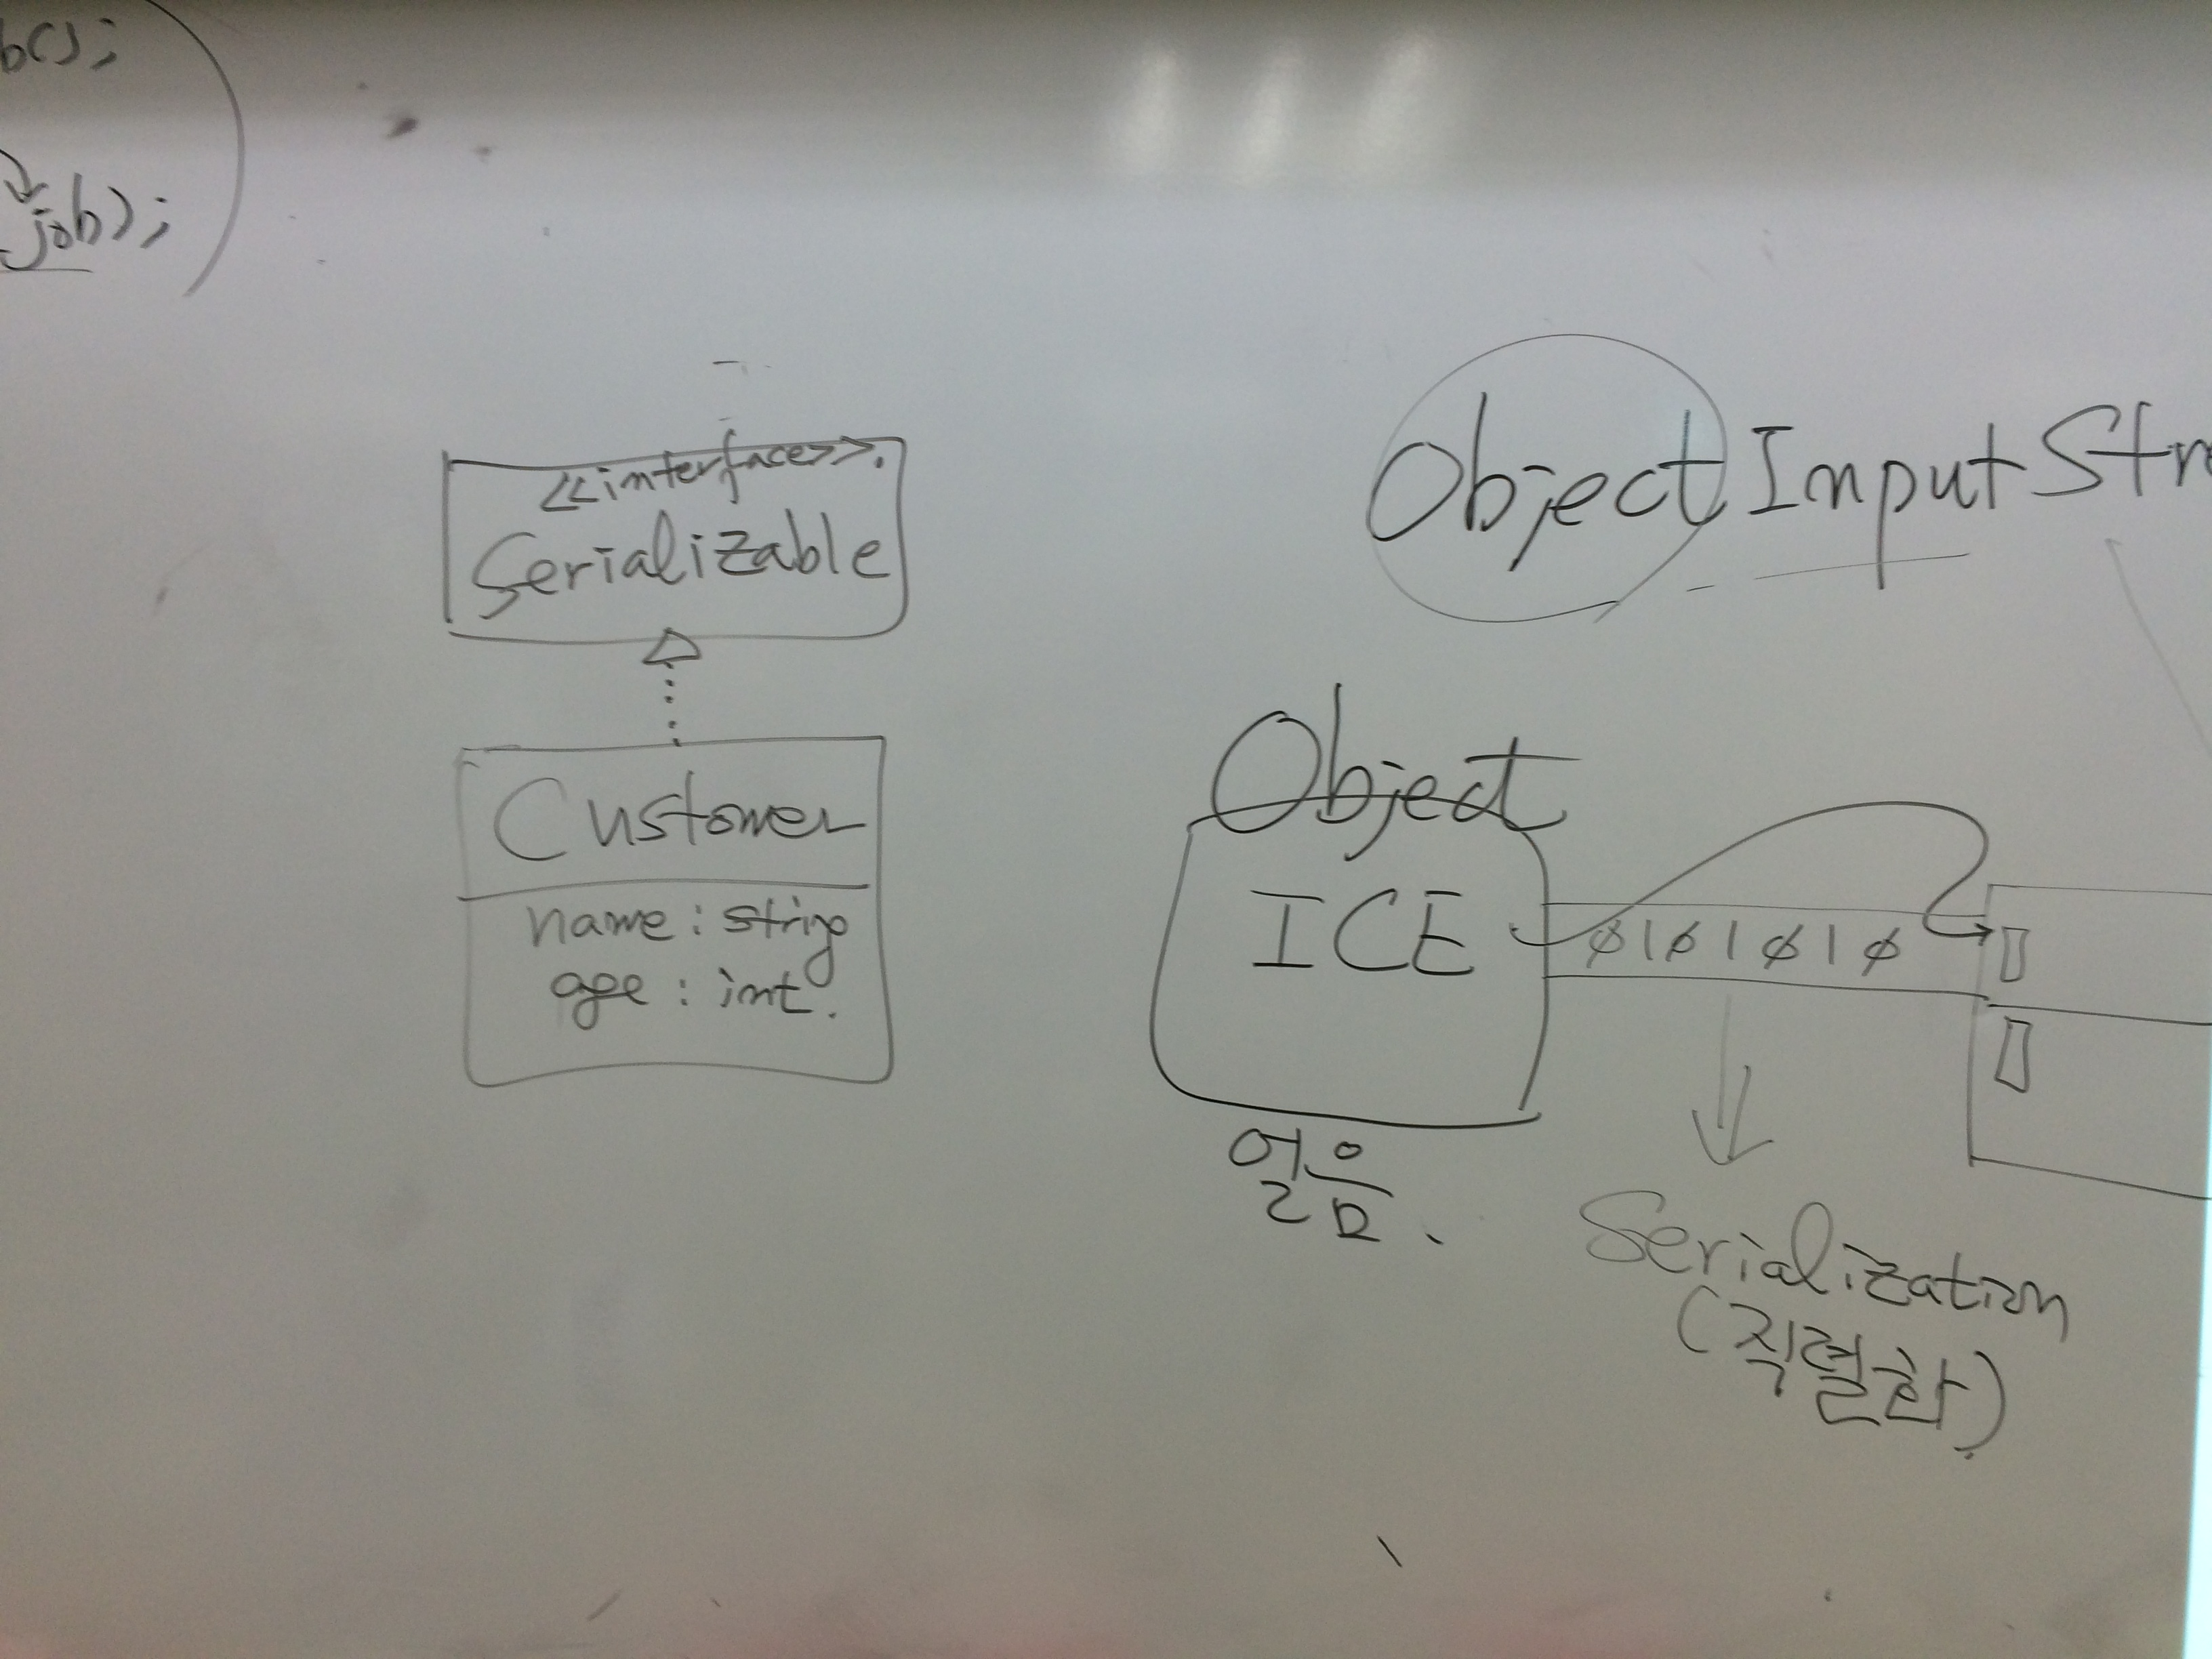 b();
job);
<<interface>>.
Serializable
Customer
name : string
age : int.
Object Input Str
Object
ICE
0101010
얼음.
Serialization
(직렬화)